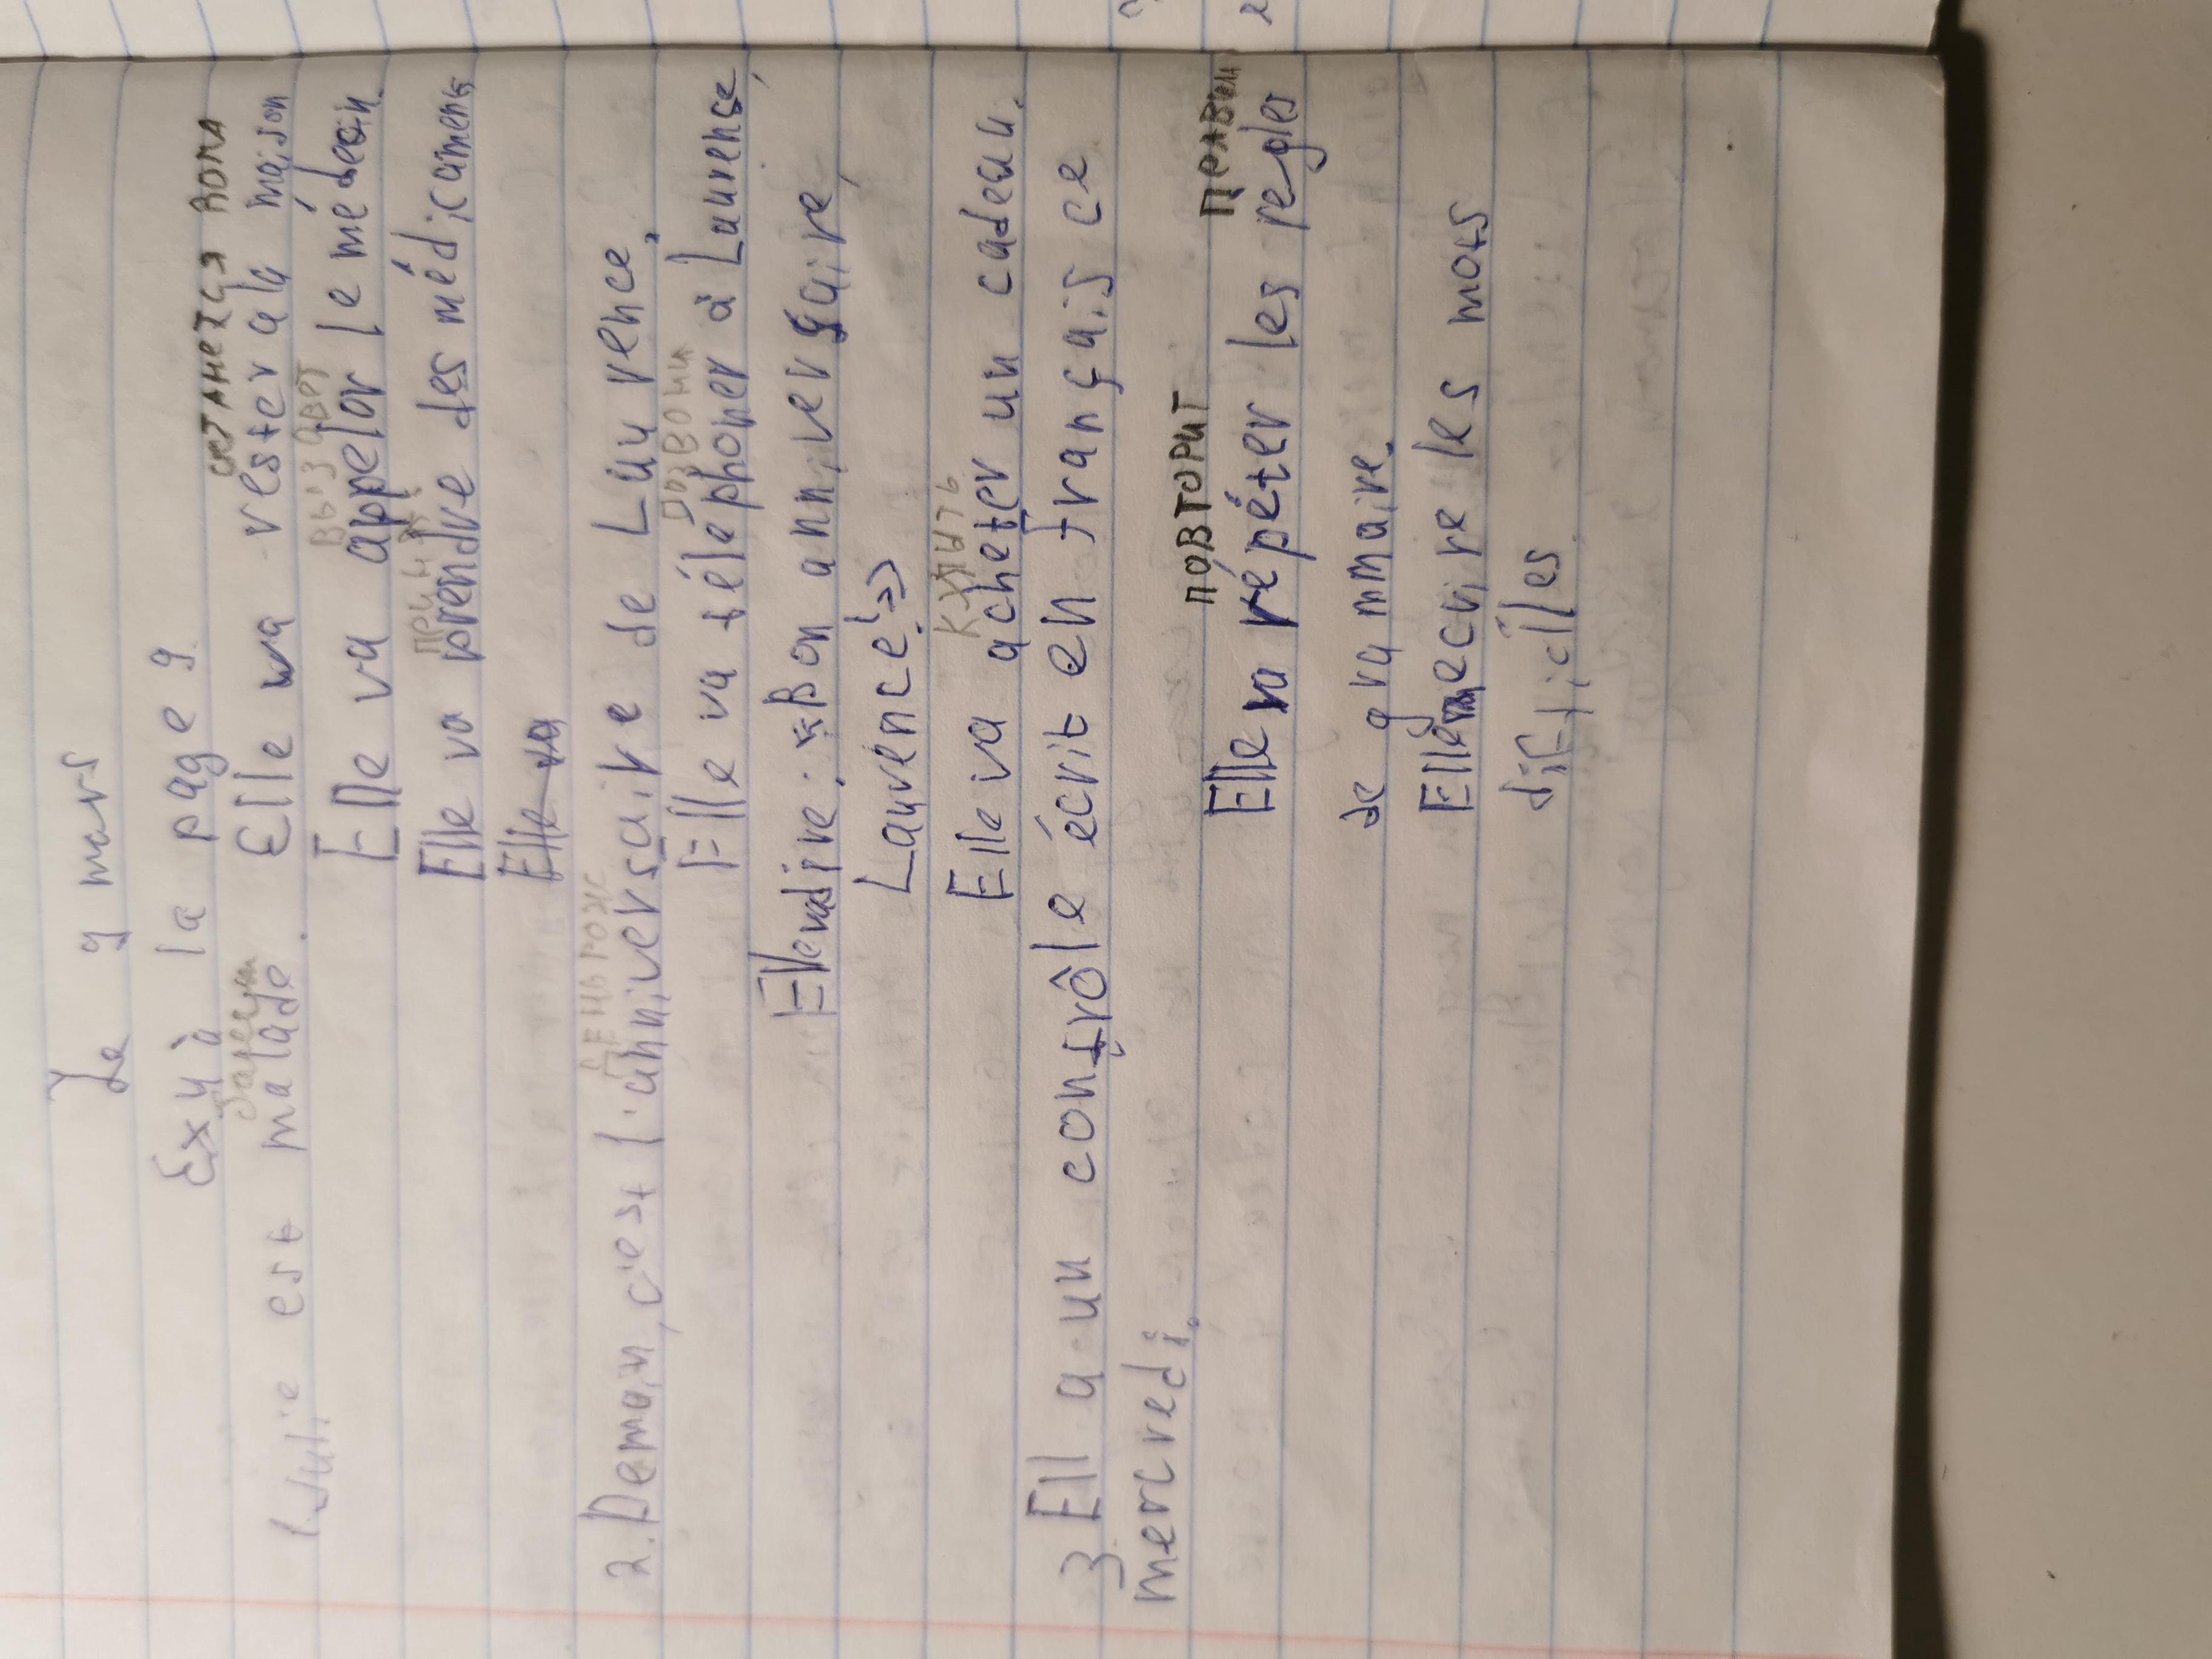 Le 9 mars
Ex 4 à la page 9.
остается дома
1. Julie est malade. Elle va rester a la maison
вызовет
Elle va appelor le médecin.
Elle va prendre des médicamens
Elle va
день рожс
2. Demain, c'est l'anniversaire de Laurence.
позвони
Elle va téléphoner à Laurense,
Elle va dire: «Bon anniversaire,
Laurence!»
купить
Elle va acheter un cadeau.
3 Ell a un contrôle écrit en français ce
mercredi.
повторит правил
Elle va répéter les regles
de grammaire.
Elle va ecrire les mots
difficiles